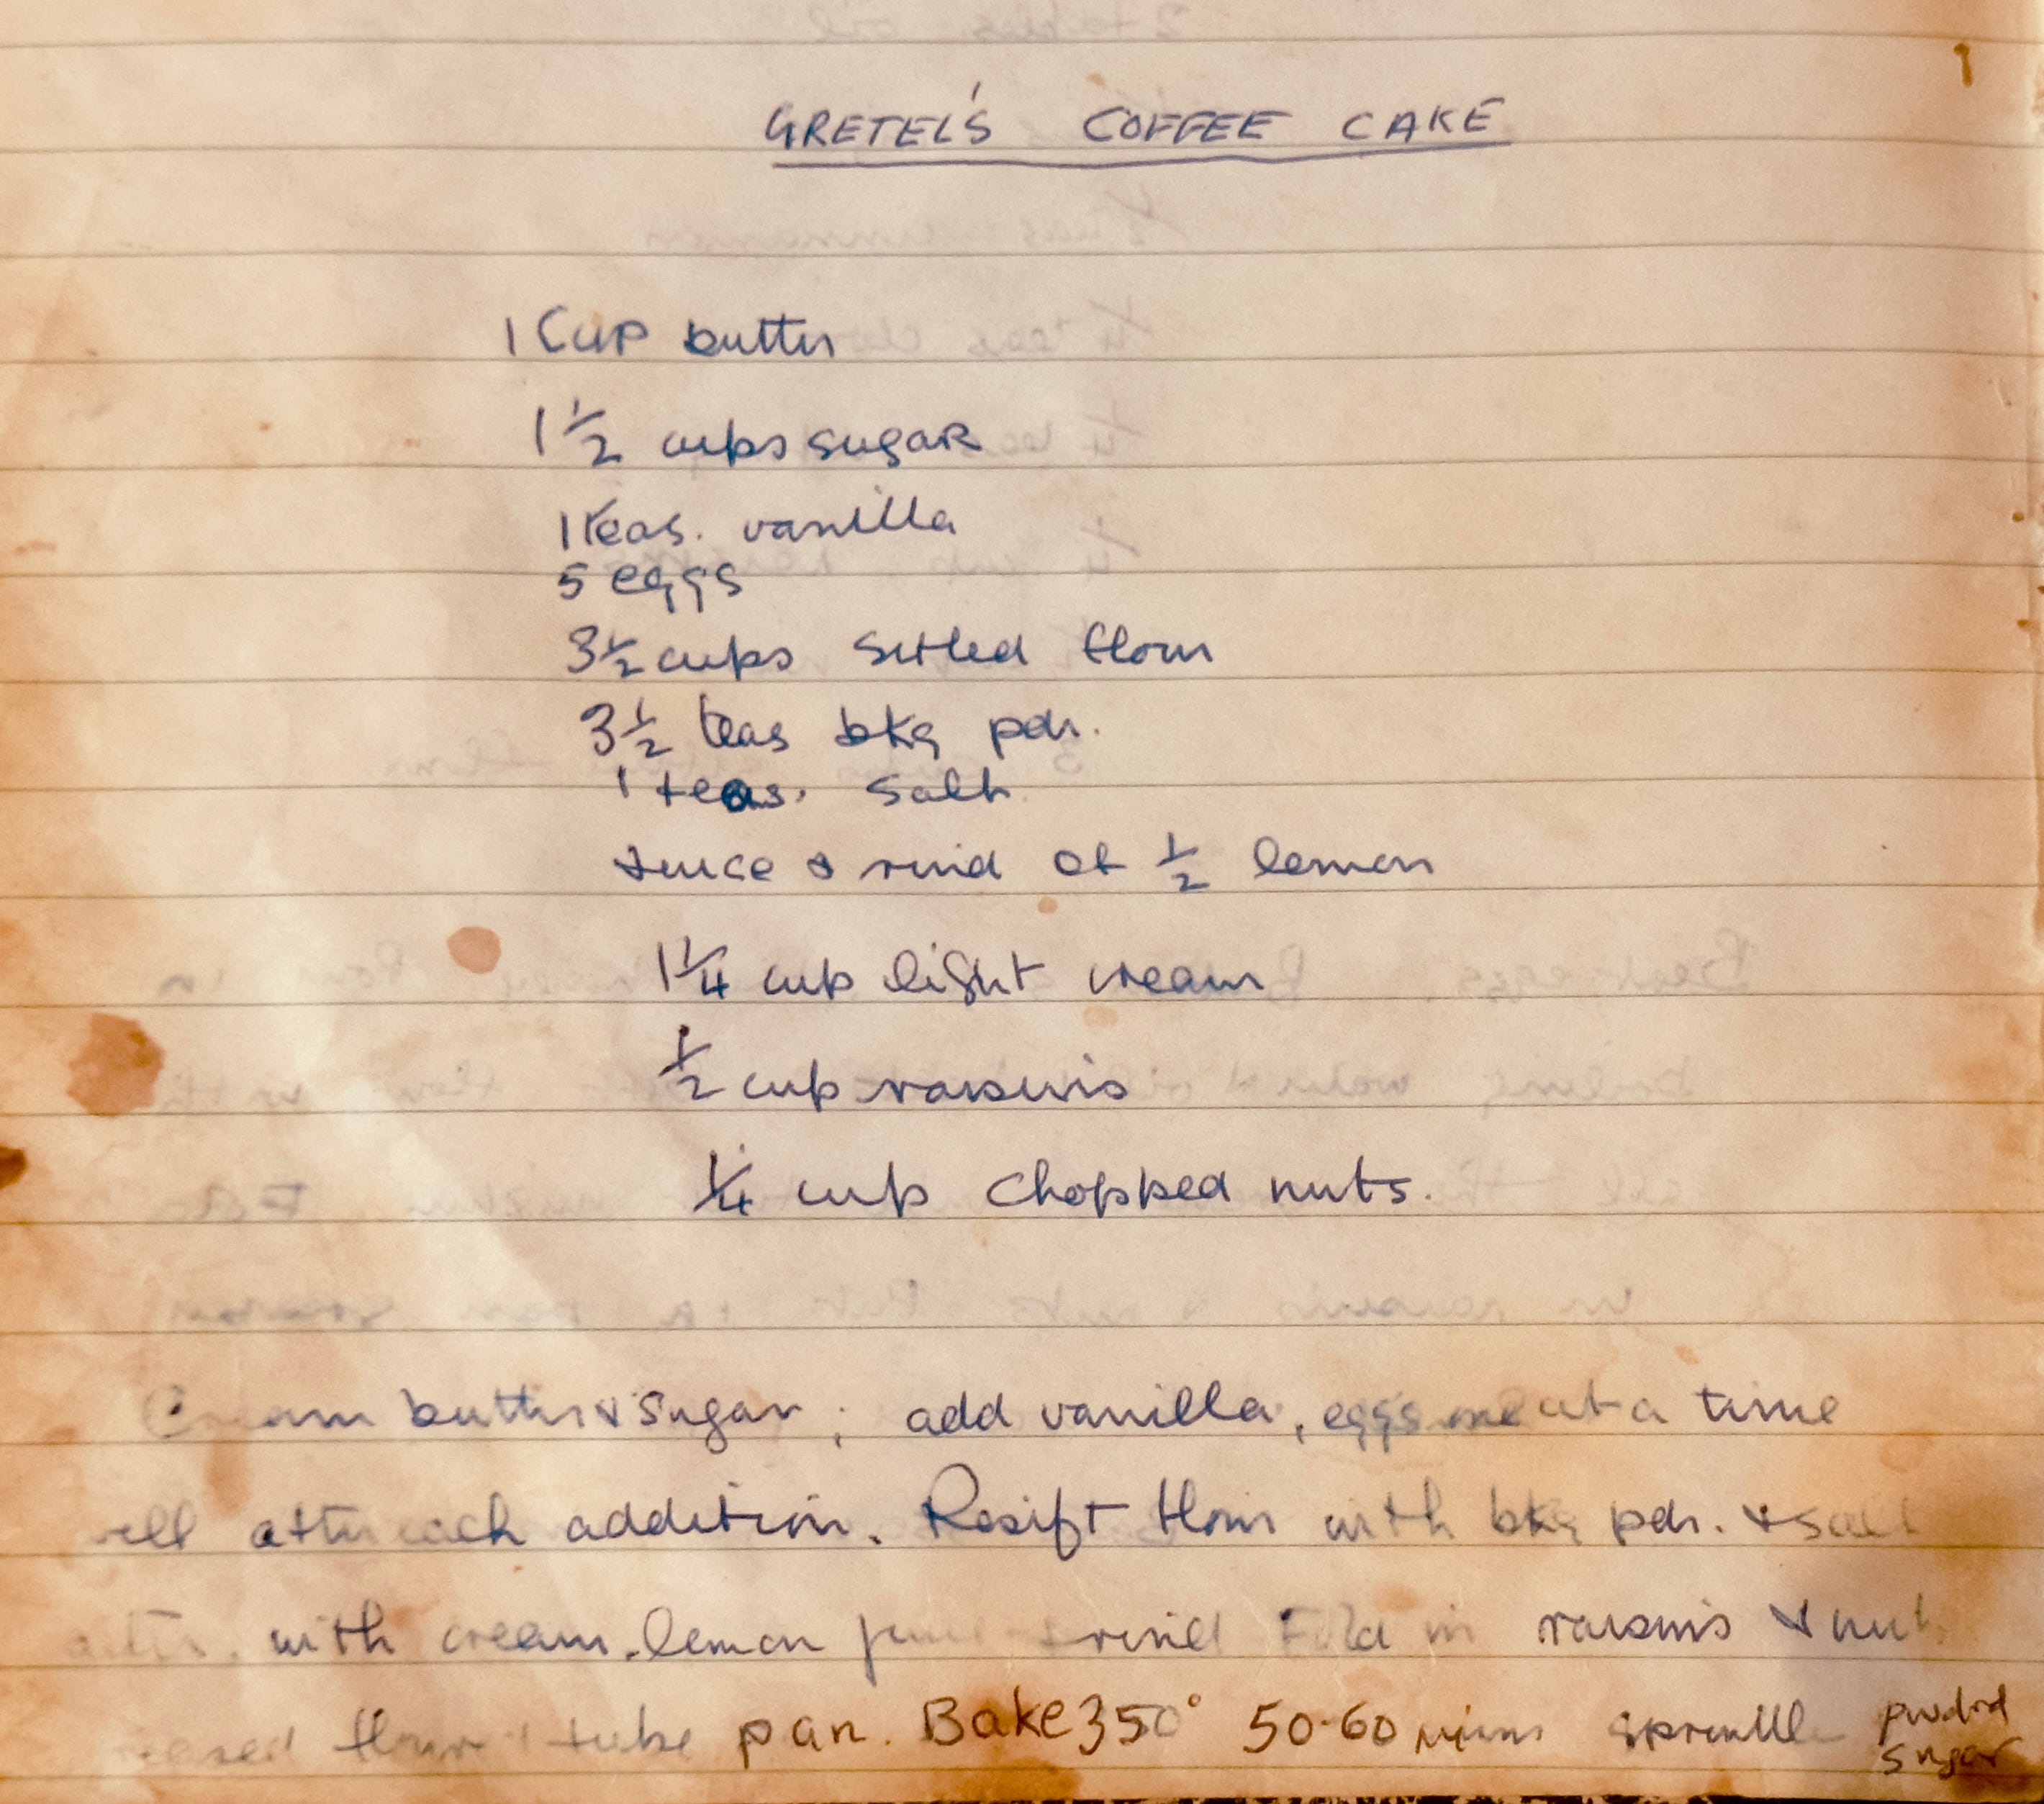 GRETEL'S COFFEE CAKE
1 Cup butter
1 1/2 cups sugar
1 teas. vanilla
5 eggs
3 1/2 cups sifted flour
3 1/2 teas bkg pdr.
1 teas. salt
Juice & rind of 1/2 lemon
1 1/4 cup light cream
1/2 cup raisins
1/4 cup chopped nuts.
Cream butter & sugar ; add vanilla, eggs one at a time
after each addition. Resift flour with bkg pdr. & salt
with cream, lemon & rind Fold in raisins & nuts
flour tube pan. Bake 350° 50-60 mins sprinkle pwdrd
sugar